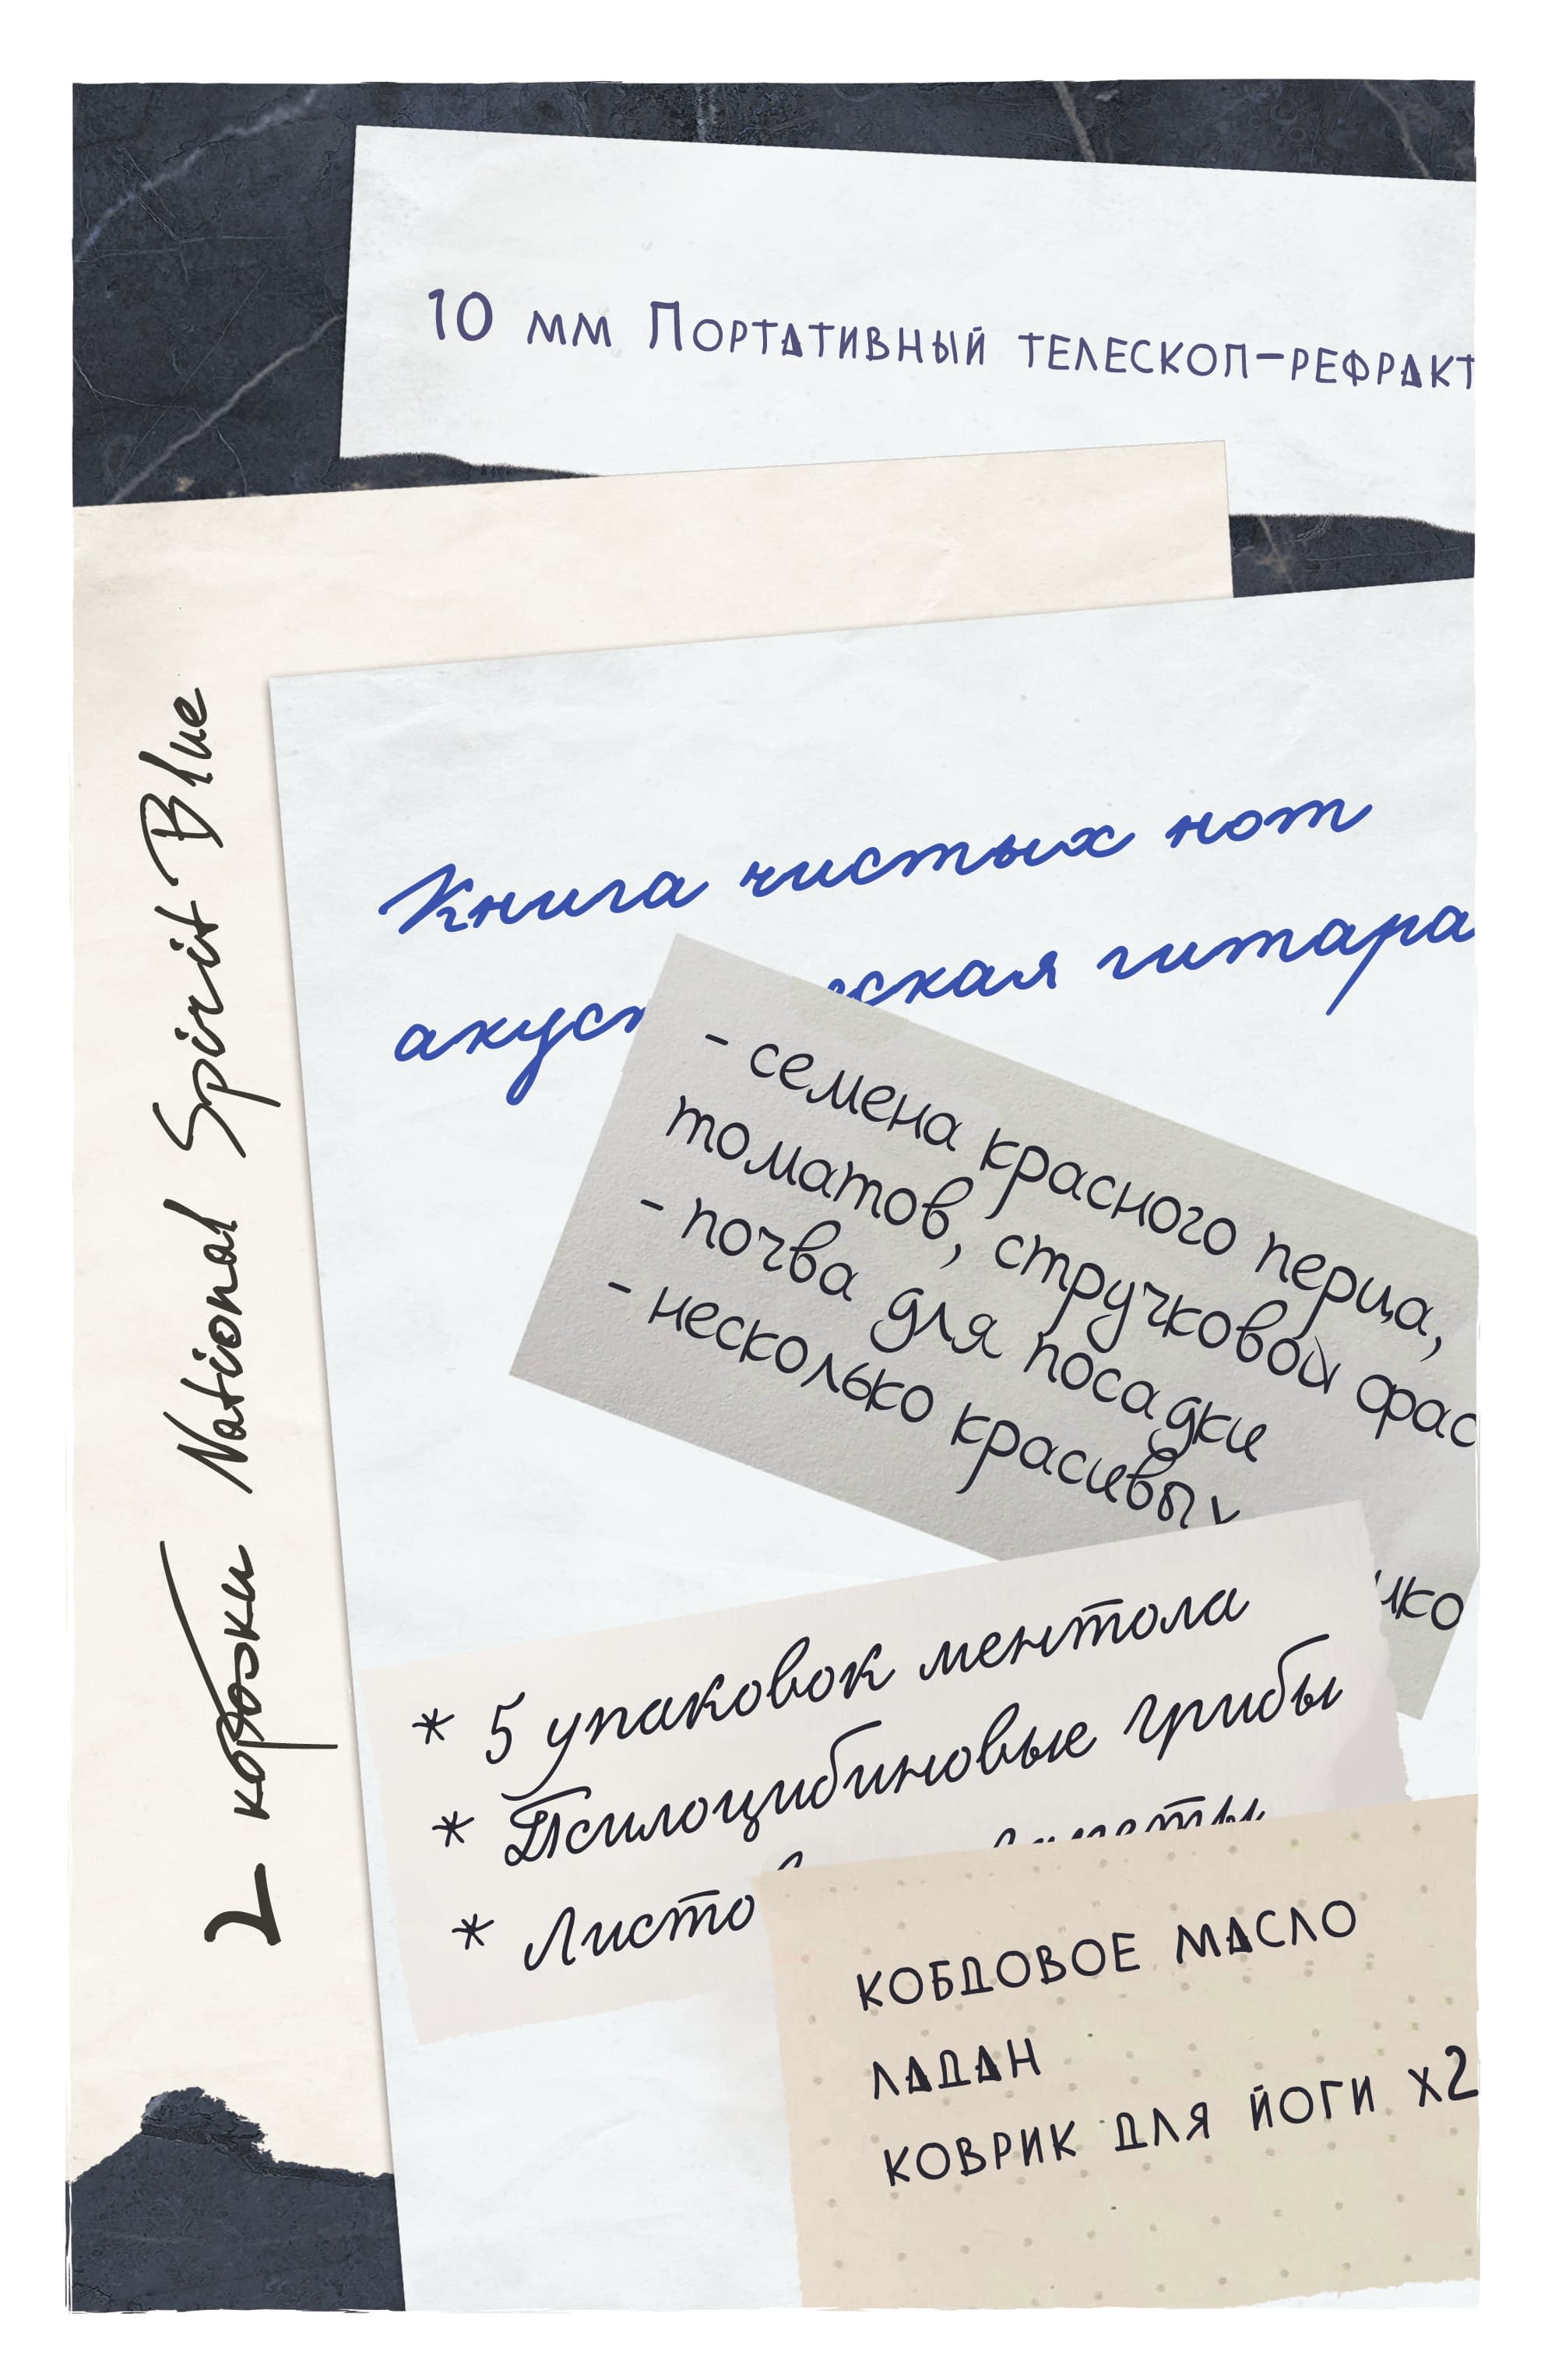 10 мм Портативный телескоп-рефракт
2 коробки National Spirit Blue
Книга чистых нот
гитара
- семена красного перца,
томатов, стручковой фас
- почва для посадки
- несколько красивых
* 5 упаковок ментола
* Псилоцибиновые грибы
* Листо
КОБДОВОЕ МАСЛО
ЛАДАН
КОВРИК ДЛЯ ЙОГИ х2